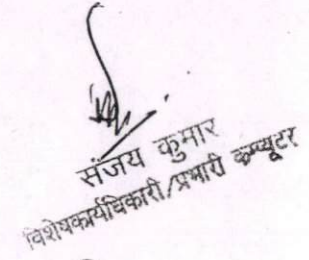 संजय कुमार
विशेषकार्याधिकारी/प्रभारी कम्प्यूटर